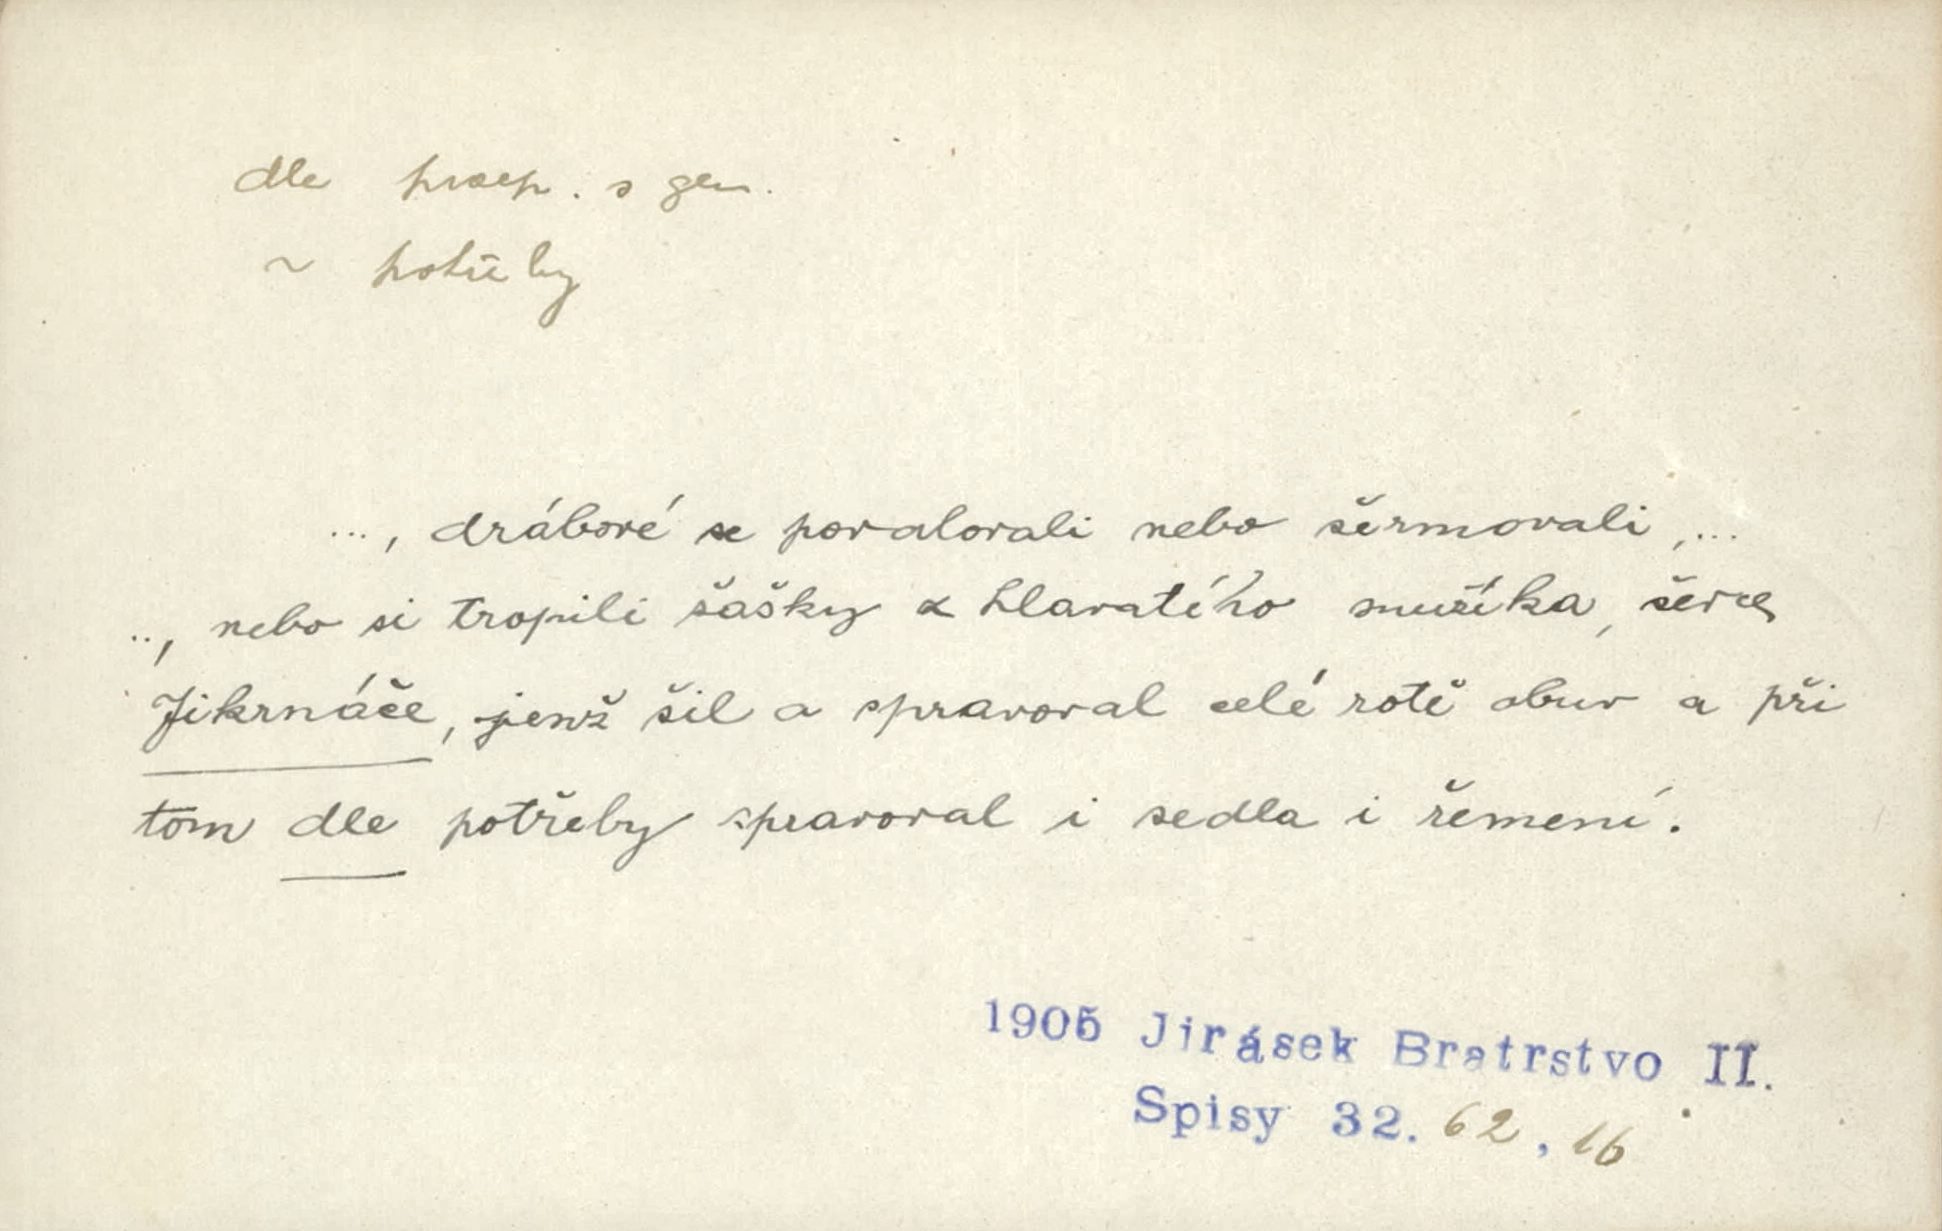 dle praep. s gen.
~ potřeby
..., dráboré se povalovali nebo šermovali,...
.., nebo si tropili šašky z hlavatého mužíka, ševce
Jikrnáče, jenž šil a spravoval celé rotě obuv a při
tom dle potřeby spravoval i sedla i řemení.
1905 Jirásek Bratrstvo II.
Spisy 32. 62, 16